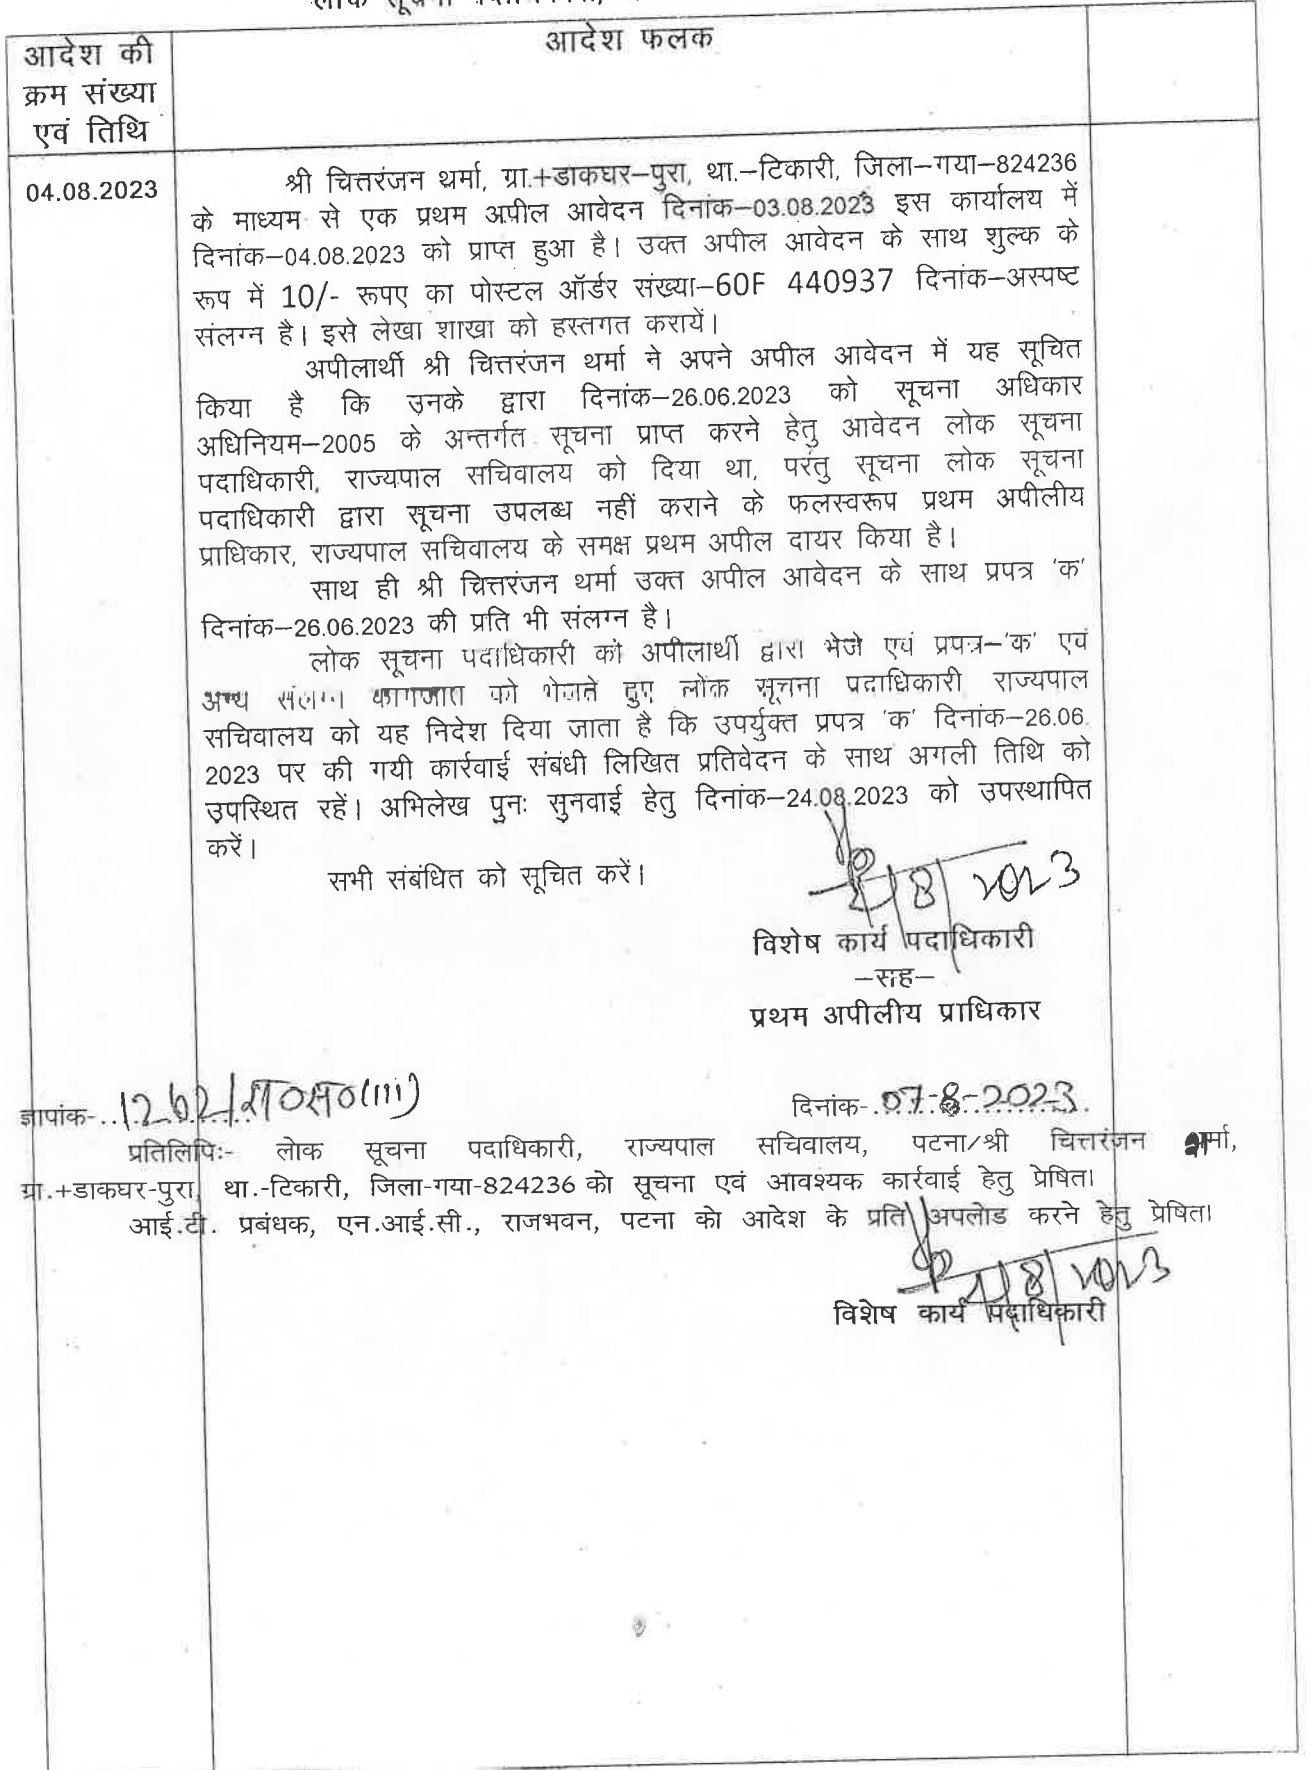 लोक सूचना
आदेश की
क्रम संख्या
एवं तिथि
आदेश फलक
04.08.2023
श्री चित्तरंजन थर्मा, ग्रा.+डाकघर–पुरा, था.–टिकारी, जिला–गया–824236
के माध्यम से एक प्रथम अपील आवेदन दिनांक–03.08.2023 इस कार्यालय में
दिनांक–04.08.2023 को प्राप्त हुआ है। उक्त अपील आवेदन के साथ शुल्क के
रूप में 10/- रूपए का पोस्टल ऑर्डर संख्या–60F 440937 दिनांक–अस्पष्ट
संलग्न है। इसे लेखा शाखा को हस्तगत करायें।
अपीलार्थी श्री चित्तरंजन थर्मा ने अपने अपील आवेदन में यह सूचित
किया है कि उनके द्वारा दिनांक–26.06.2023 को सूचना अधिकार
अधिनियम–2005 के अन्तर्गत सूचना प्राप्त करने हेतु आवेदन लोक सूचना
पदाधिकारी, राज्यपाल सचिवालय को दिया था, परंतु सूचना लोक सूचना
पदाधिकारी द्वारा सूचना उपलब्ध नहीं कराने के फलस्वरूप प्रथम अपीलीय
प्राधिकार, राज्यपाल सचिवालय के समक्ष प्रथम अपील दायर किया है।
साथ ही श्री चित्तरंजन थर्मा उक्त अपील आवेदन के साथ प्रपत्र 'क'
दिनांक–26.06.2023 की प्रति भी संलग्न है।
लोक सूचना पदाधिकारी को अपीलार्थी द्वारा भेजे एवं प्रपत्र–'क' एवं
अन्य संलग्न कागजात को भेजते हुए लोक सूचना पदाधिकारी राज्यपाल
सचिवालय को यह निदेश दिया जाता है कि उपर्युक्त प्रपत्र 'क' दिनांक–26.06.
2023 पर की गयी कार्रवाई संबंधी लिखित प्रतिवेदन के साथ अगली तिथि को
उपस्थित रहें। अभिलेख पुनः सुनवाई हेतु दिनांक–24.08.2023 को उपस्थापित
करें।
सभी संबंधित को सूचित करें।
8/2023
विशेष कार्य पदाधिकारी
–सह–
प्रथम अपीलीय प्राधिकार
ज्ञापांक-..1262/रा०स०(III)
दिनांक-.07-8-2023.
प्रतिलिपिः- लोक सूचना पदाधिकारी, राज्यपाल सचिवालय, पटना/श्री चित्तरंजन शर्मा,
ग्रा.+डाकघर-पुरा, था.-टिकारी, जिला-गया-824236 को सूचना एवं आवश्यक कार्रवाई हेतु प्रेषित।
आई.टी. प्रबंधक, एन.आई.सी., राजभवन, पटना को आदेश के प्रति अपलोड करने हेतु प्रेषित।
8/2023
विशेष कार्य पदाधिकारी